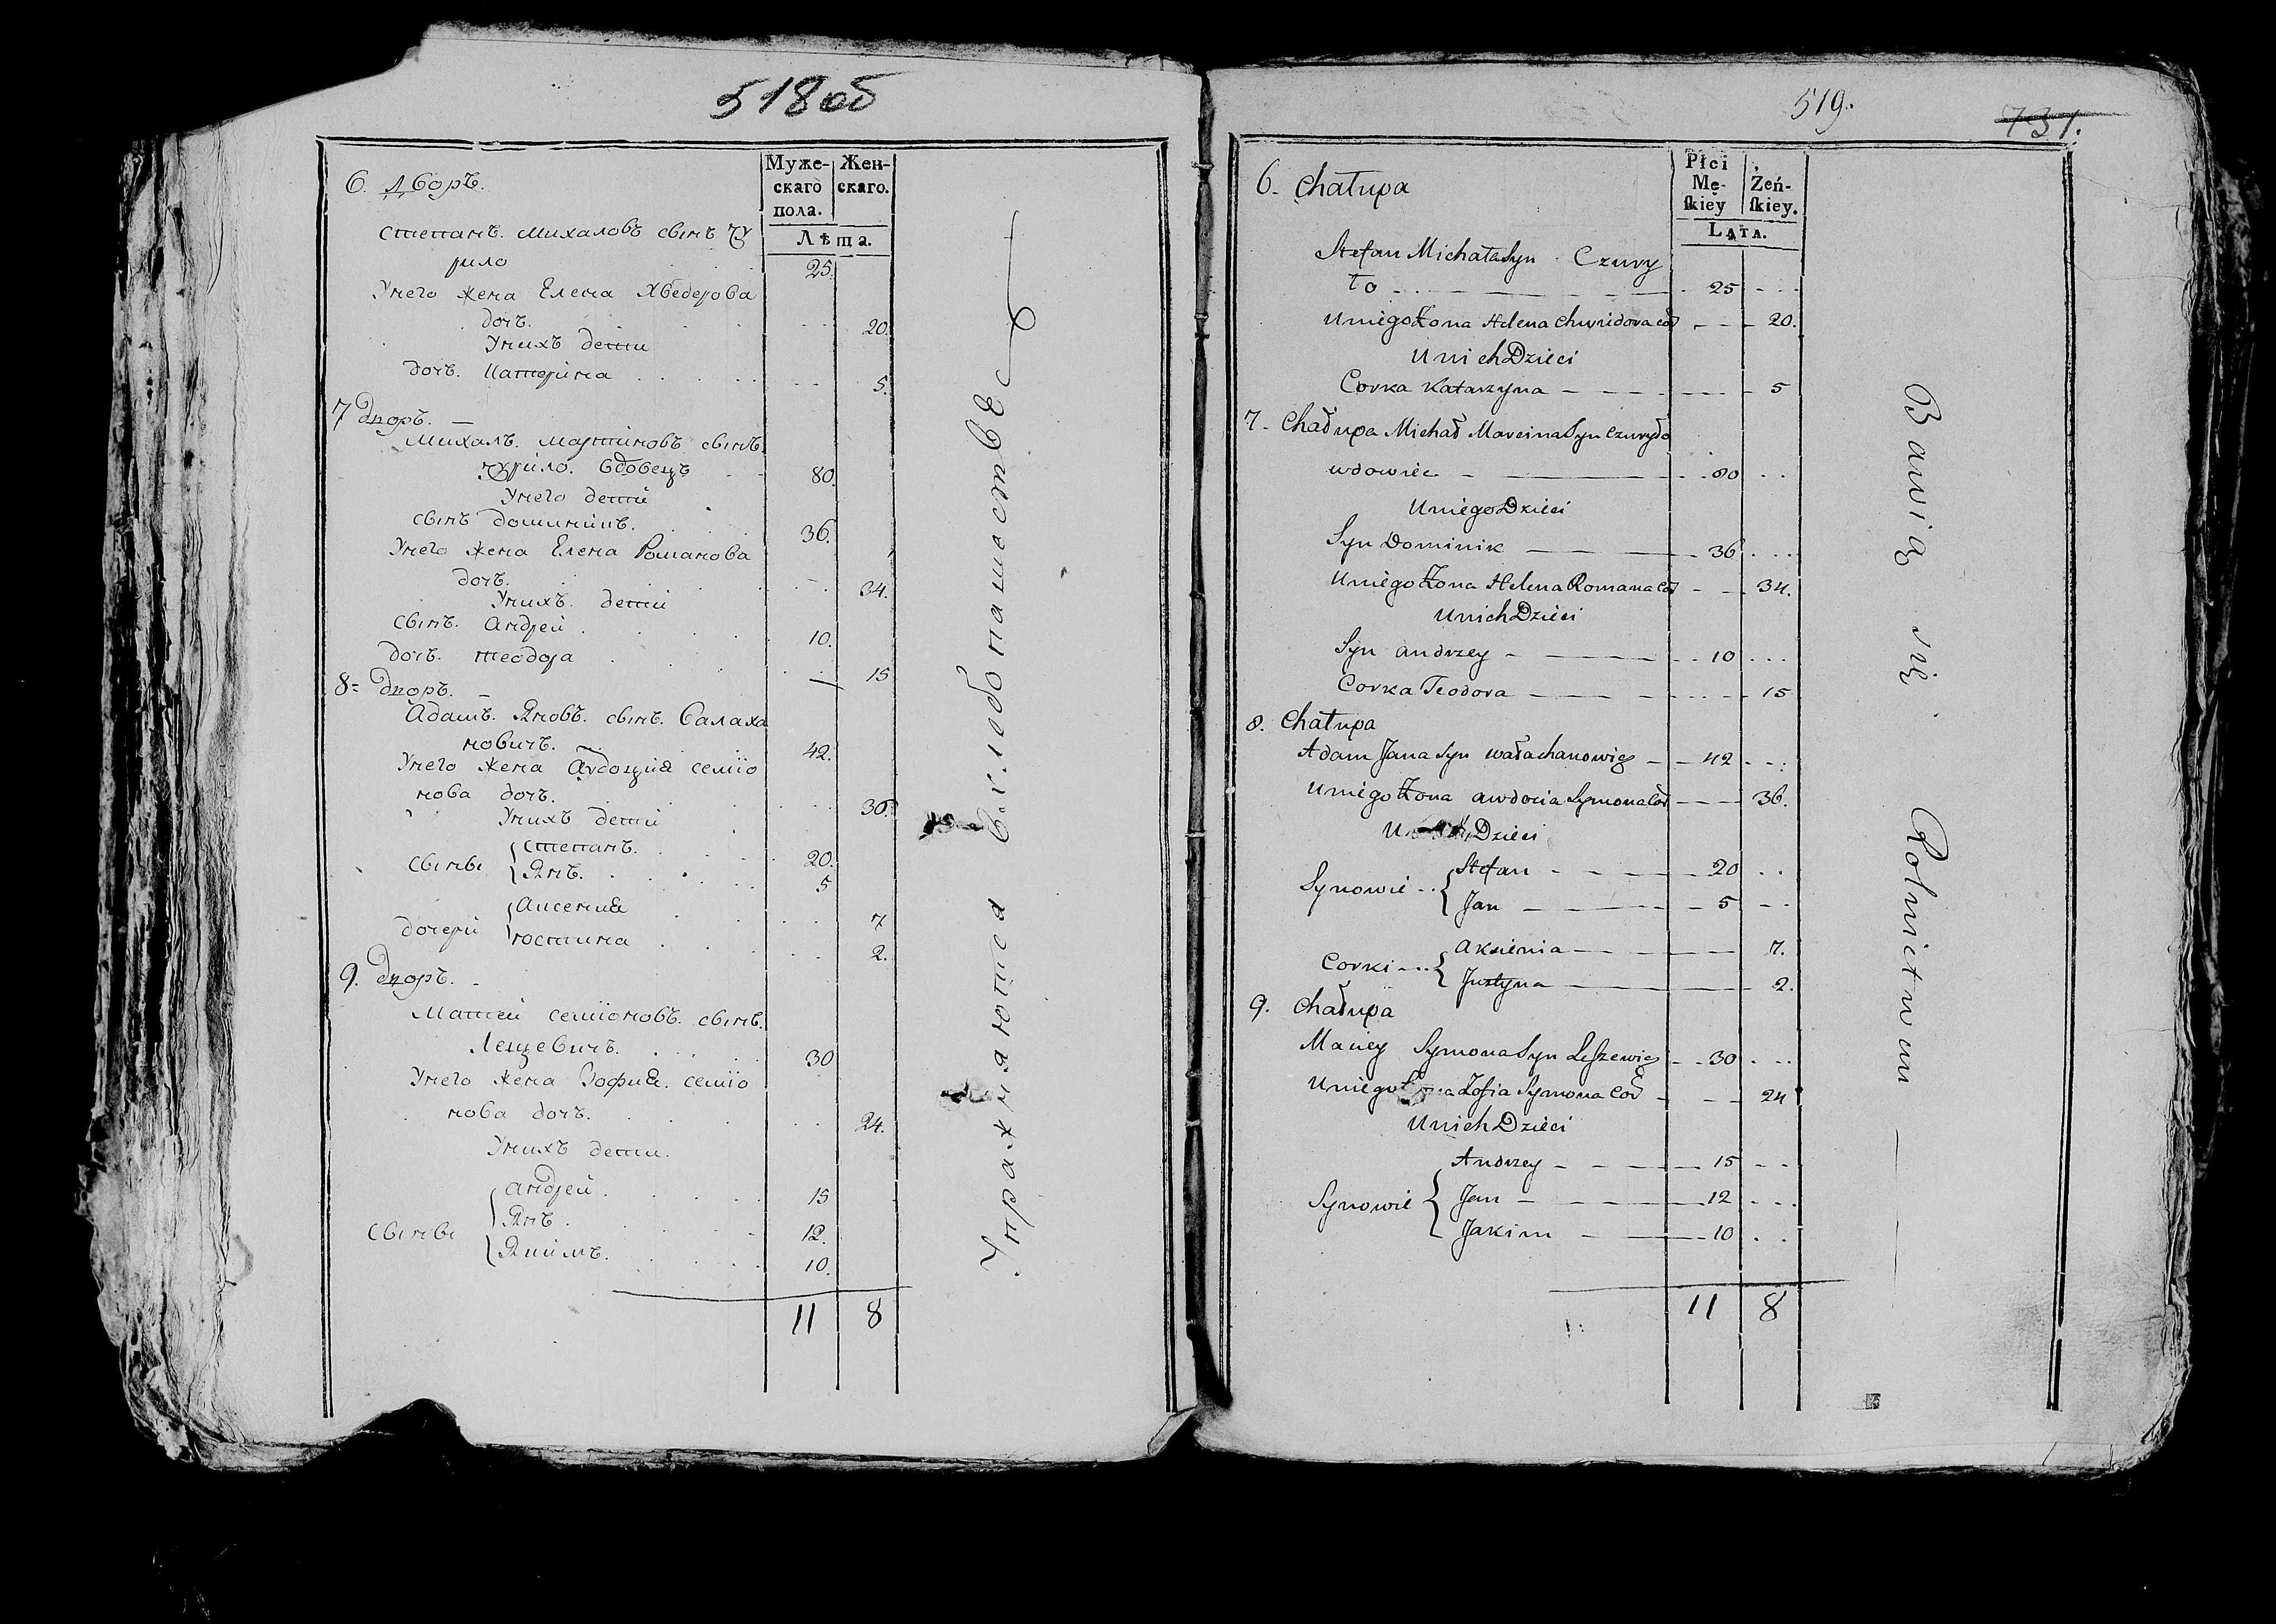 518об
Муже-
скаго
пола.
Жен-
скаго.
Лѣта.
6. Дворъ.
Степанъ. Михаловъ сынъ Чу
рило 25.
Унего жена Елена Хведерова
дочъ. 20.
Унихъ дети
дочъ. Катерина 5.
7 Дворъ.
Михалъ. Мартиновъ сынъ.
Чурило. вдовецъ 80.
Унего дети
сынъ доминикъ. 36.
Унего жена Елена Романова
дочъ. 34.
Унихъ. дети
сынъ. Андрей 10.
дочъ. теодора 15
8= Дворъ.
Адамъ. Яновъ. сынъ. Салаха
новичъ. 42.
Унего жена Авдоция семіо
нова дочъ. 36.
Унихъ дети
сыны { Степанъ. 20.
Янъ. 5
дочери { Аксения 7
юстина 2.
9. Дворъ.
Матей семіоновъ. сынъ.
Лещевичъ. 30
Унего жена Зофия. семіо
нова дочъ. 24.
Унихъ дети.
сыны { андрей. 15
Янъ. 12.
Якимъ. 10.
11 8
Упражняются въ хлебопашестве
519.
731.
Płci
Mę-
ſkiey
Żeń-
ſkiey.
Lata.
6. Chałupa
Stefan Michała Syn Czury
ło 25
U niego Żona Helena Chwiedora cor 20.
U nich Dzieci
Corka Katarzyna 5
7. Chałupa Michał Marcina Syn Czuryło
wdowiec 80
U niego Dzieci
Syn Dominik 36
U niego Żona Helena Romana Cor 34.
U nich Dzieci
Syn Andrzey 10
Corka Teodora 15
8. Chałupa
Adam Jana Syn Wałachanowicz 42
U niego Żona Awdocia Symona Cor 36.
U nich Dzieci
Synowie { Stefan 20
Jan 5
Corki { Aksienia 7.
Justyna 2.
9. Chałupa
Maciey Symona Syn Leszewicz 30
U niego Żona Zofia Symona Cor 24
U nich Dzieci
Synowie { Andrzey 15
Jan 12
Jakim 10
11 8
Bawią się Rolnictwem